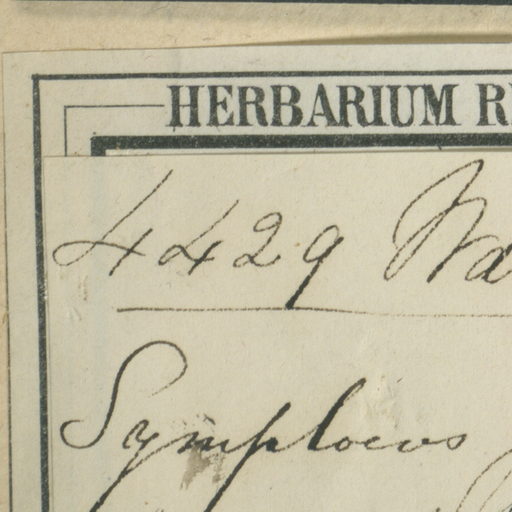 HERBARIUM
4429
Symplocos